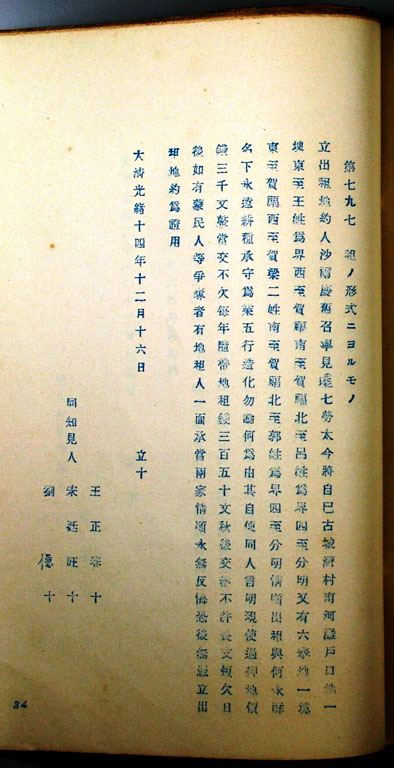 第七九七 租ノ形式ニヨルモノ
立出租地約人沙爾慶舊召寧見 七勞太今將自己古城灣村南河 戶口地一
塊東至王姓爲界西至賀福南至賀福北至呂姓爲界四至分明又有六 地一塊
東至賀福西至賀梁二姓南至賀福北至郭姓爲界四至分明情願出租與何永
名下永遠耕種承守爲業五行造化勿論何爲由其自便同人言明現使過押地價
錢三千文整當交不欠每年隨帶地租錢三百五十文秋後交納不許長支短欠日
後如有蒙民人等爭奪者有地租人一面承當兩家情願永無反悔恐後無憑立出
租地約爲證用
大淸光緖十四年十二月十六日 立十
同知見人
王正 十
宋廷旺十
劉 德十
34